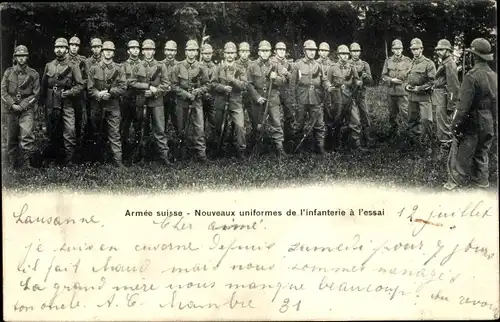 Armée suisse - Nouveaux uniformes de l'infanterie à l'essai
Lausanne 12 juillet
Cher aimé.
je suis en caserne depuis samedi pour 7 jours
il fait chaud mais nous sommes menagés
la grand mère nous manque beaucoup. au revoir
ton oncle. A. C. Chambre 31